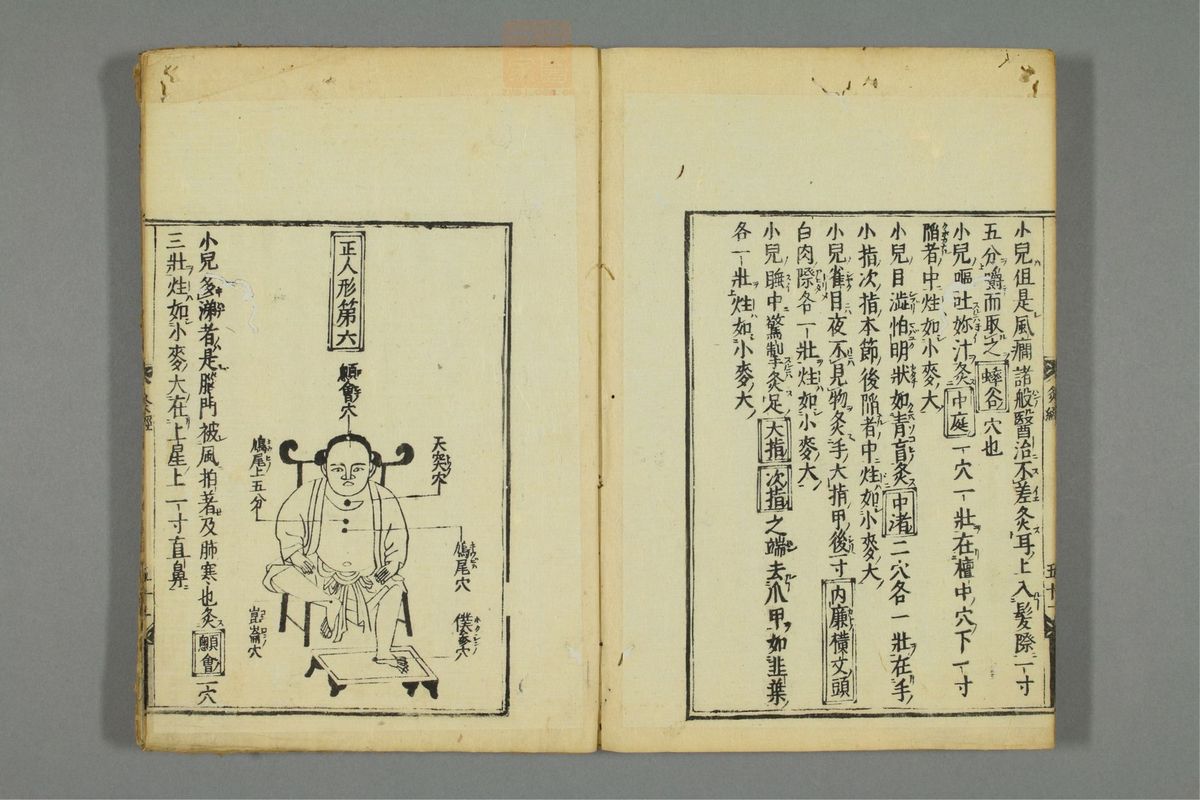 小兒但是風癇諸般醫治不差灸耳上入髮際一寸
五分嚼而取之蟀谷穴也
小兒嘔吐妳汁灸中庭一穴一壯在檀中穴下一寸
陷者中炷如小麥大
小兒目澁怕明狀如青盲灸中渚二穴各一壯在手
小指次指本節後陷者中炷如小麥大
小兒雀目夜不見物灸手大指甲後一寸內廉橫文頭
白肉際各一壯炷如小麥大
小兒睡中驚掣灸足大指次指之端去爪甲如韭葉
各一壯炷如小麥大
灸經
正人形第六
顖會穴
天突穴
鳩尾上五分
鳩尾穴
僕參穴
崑崙穴
小兒多涕者是腦門被風拍著及肺寒也灸顖會一穴
三壯炷如小麥大在上星上一寸直鼻
灸經